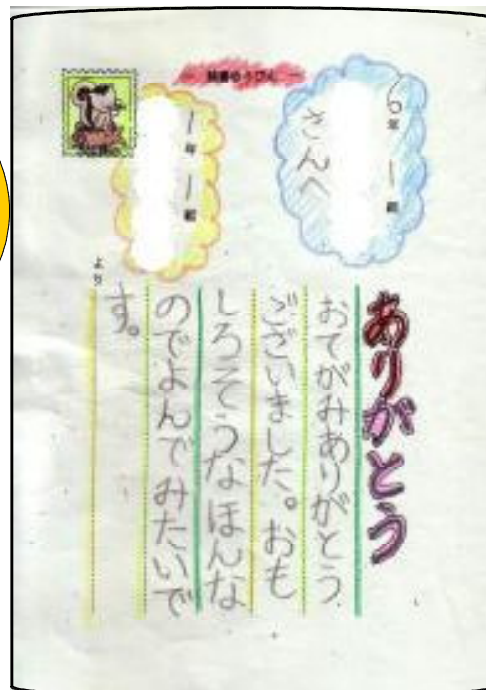 読書ゆうびん
6年 1組
さんへ
1年 1組
より
ありがとう
おてがみありがとう
ございました。おも
しろそうなほんな
のでよんでみたいで
す。